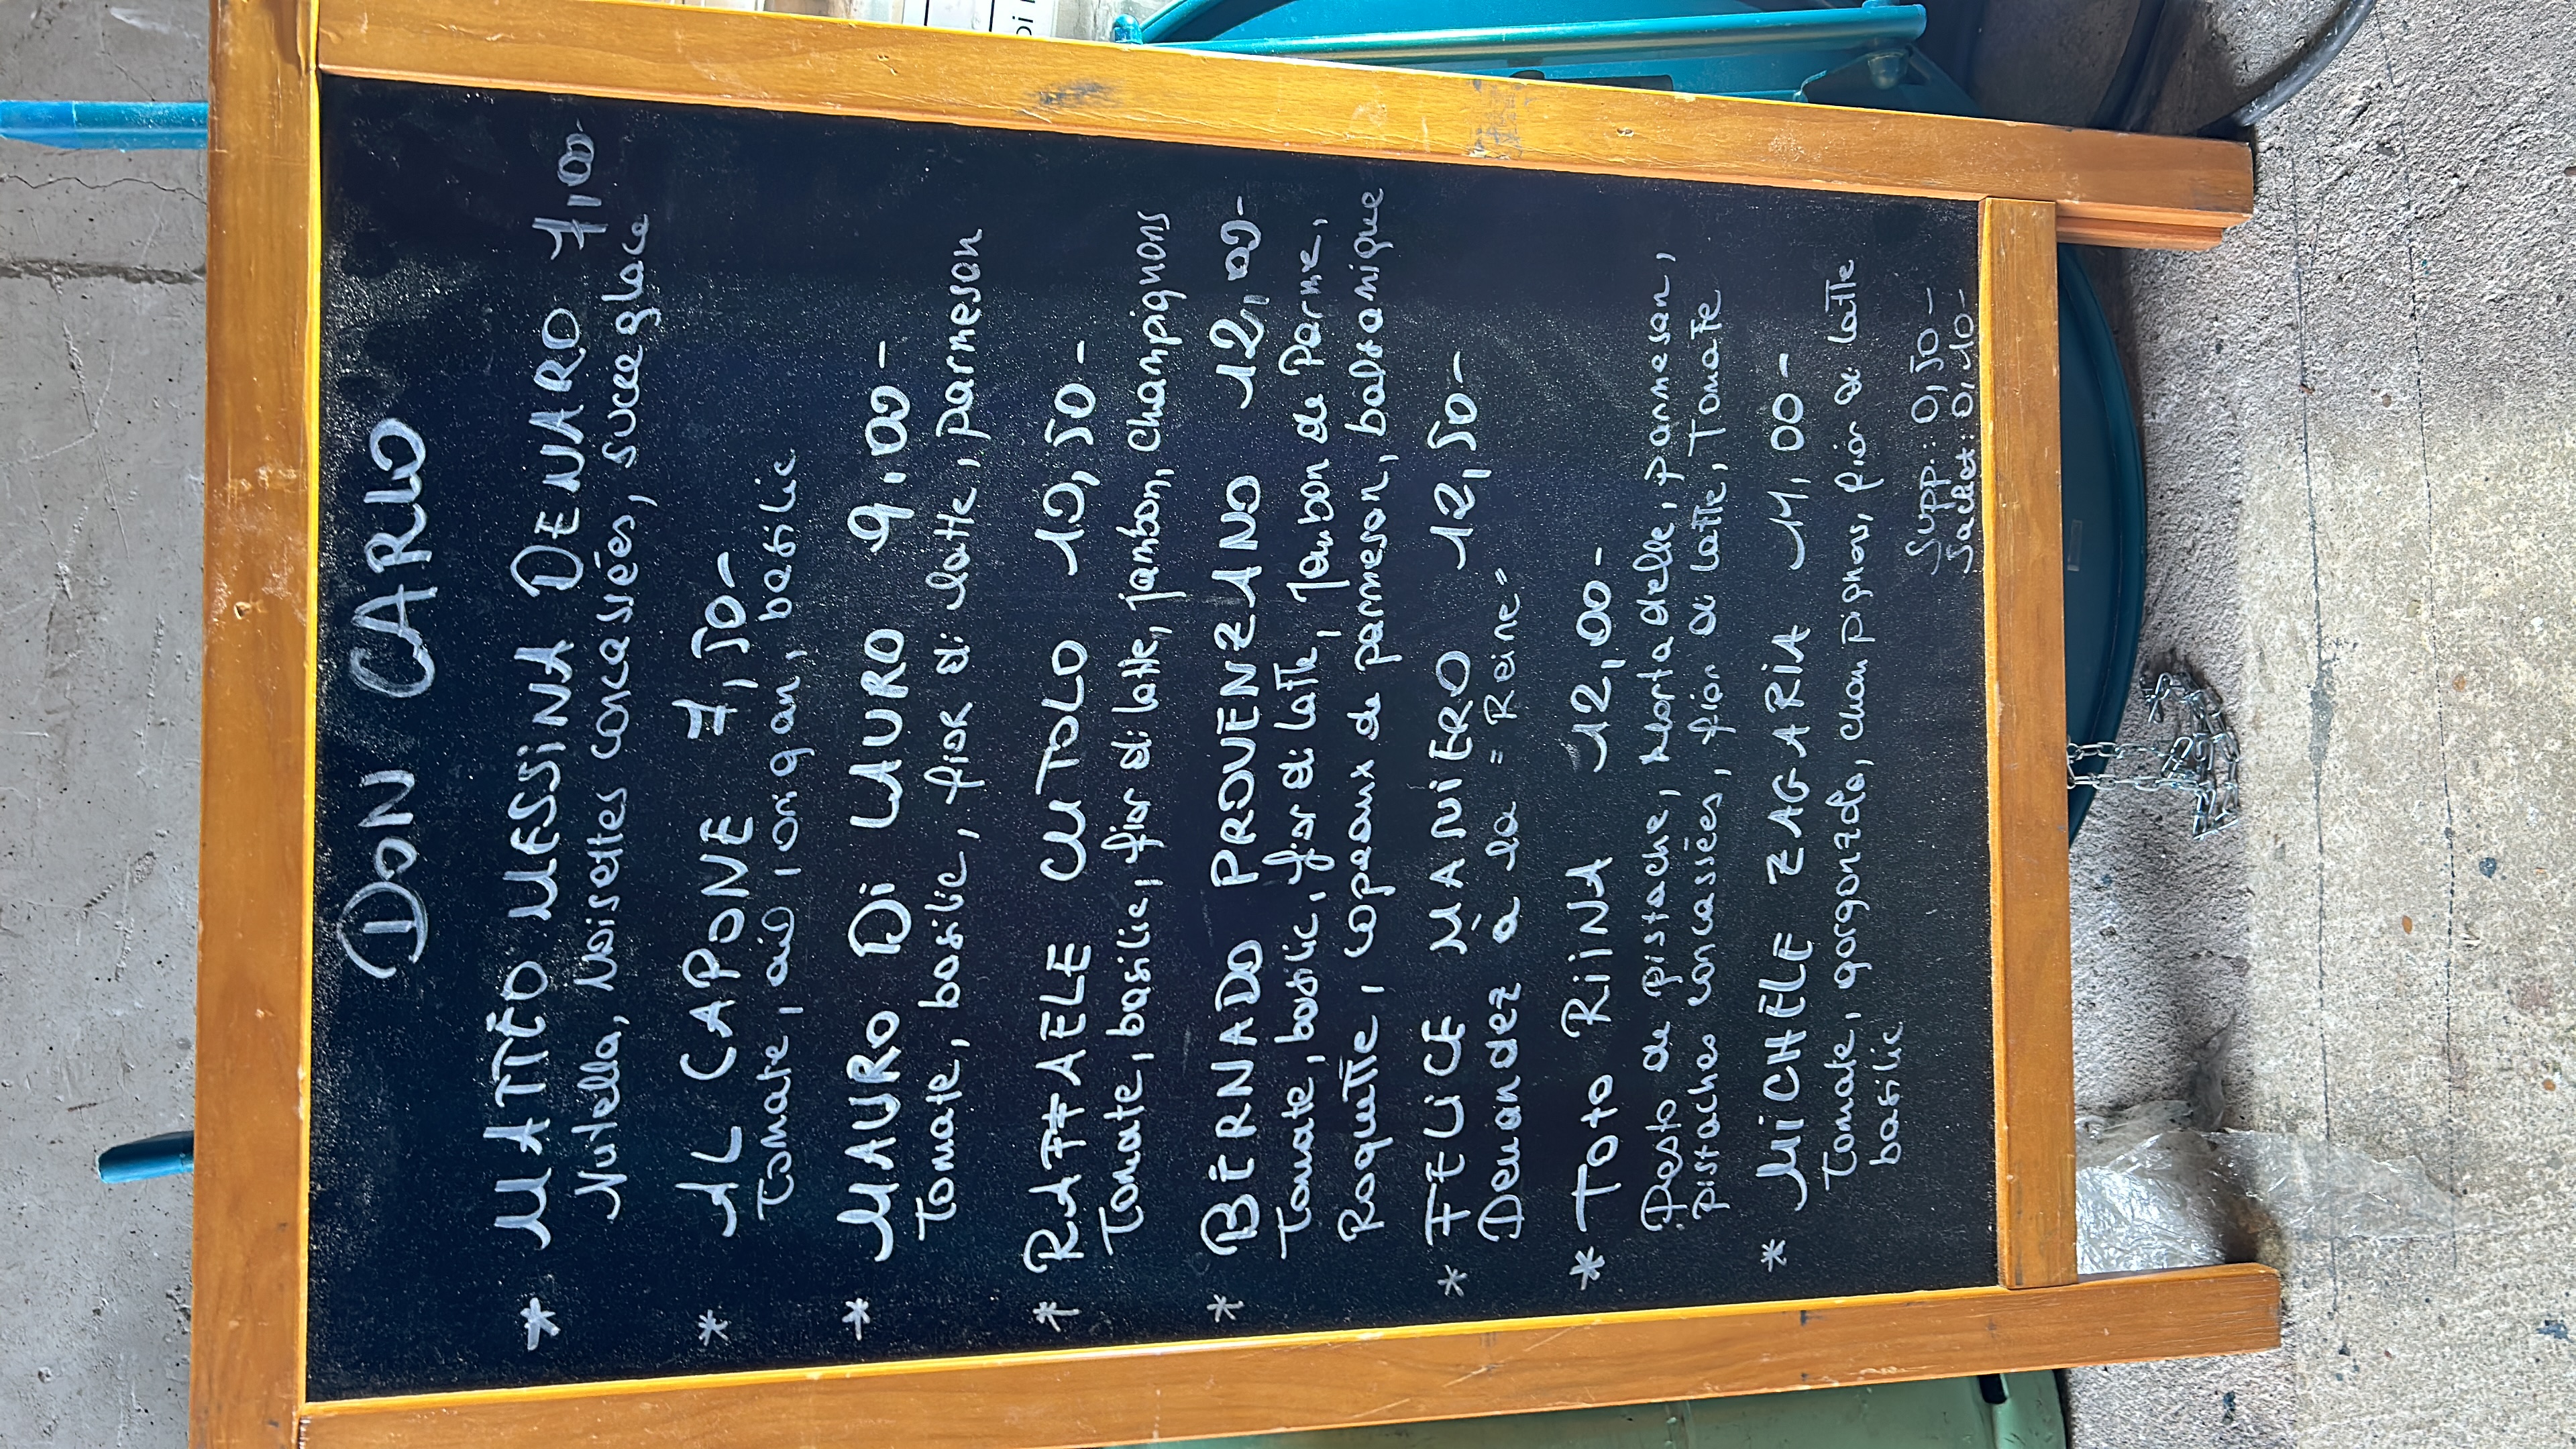 DON CARLO
* MATTEO MESSINA DENARO 7,00
Nutella, Noisettes concassées, sucre glace
* AL CAPONE 7,50-
Tomate, ail, origan, basilic
* MAURO Di LAURO 9,00-
Tomate, basilic, fior di latte, parmesan
* RAFFAELE CUTOLO 10,50-
Tomate, basilic, fior di latte, jambon, champignons
* BERNADO PROVENZANO 12,00-
Tomate, basilic, fior di latte, Jambon de Parme,
Roquette, copeaux de parmesan, balsamique
* FELICE MANIERO 12,50-
Demandez à la = Reine =
* Toto RiiNA 12,00-
Pesto de pistache, Mortadelle, parmesan,
pistaches concassées, fior di latte, Tomate
* MiCHELE ZAGARIA 11,00-
Tomate, gorgonzola, champignons, fior di latte
basilic
Supp.: 0,50-
Sachet: 0,10-